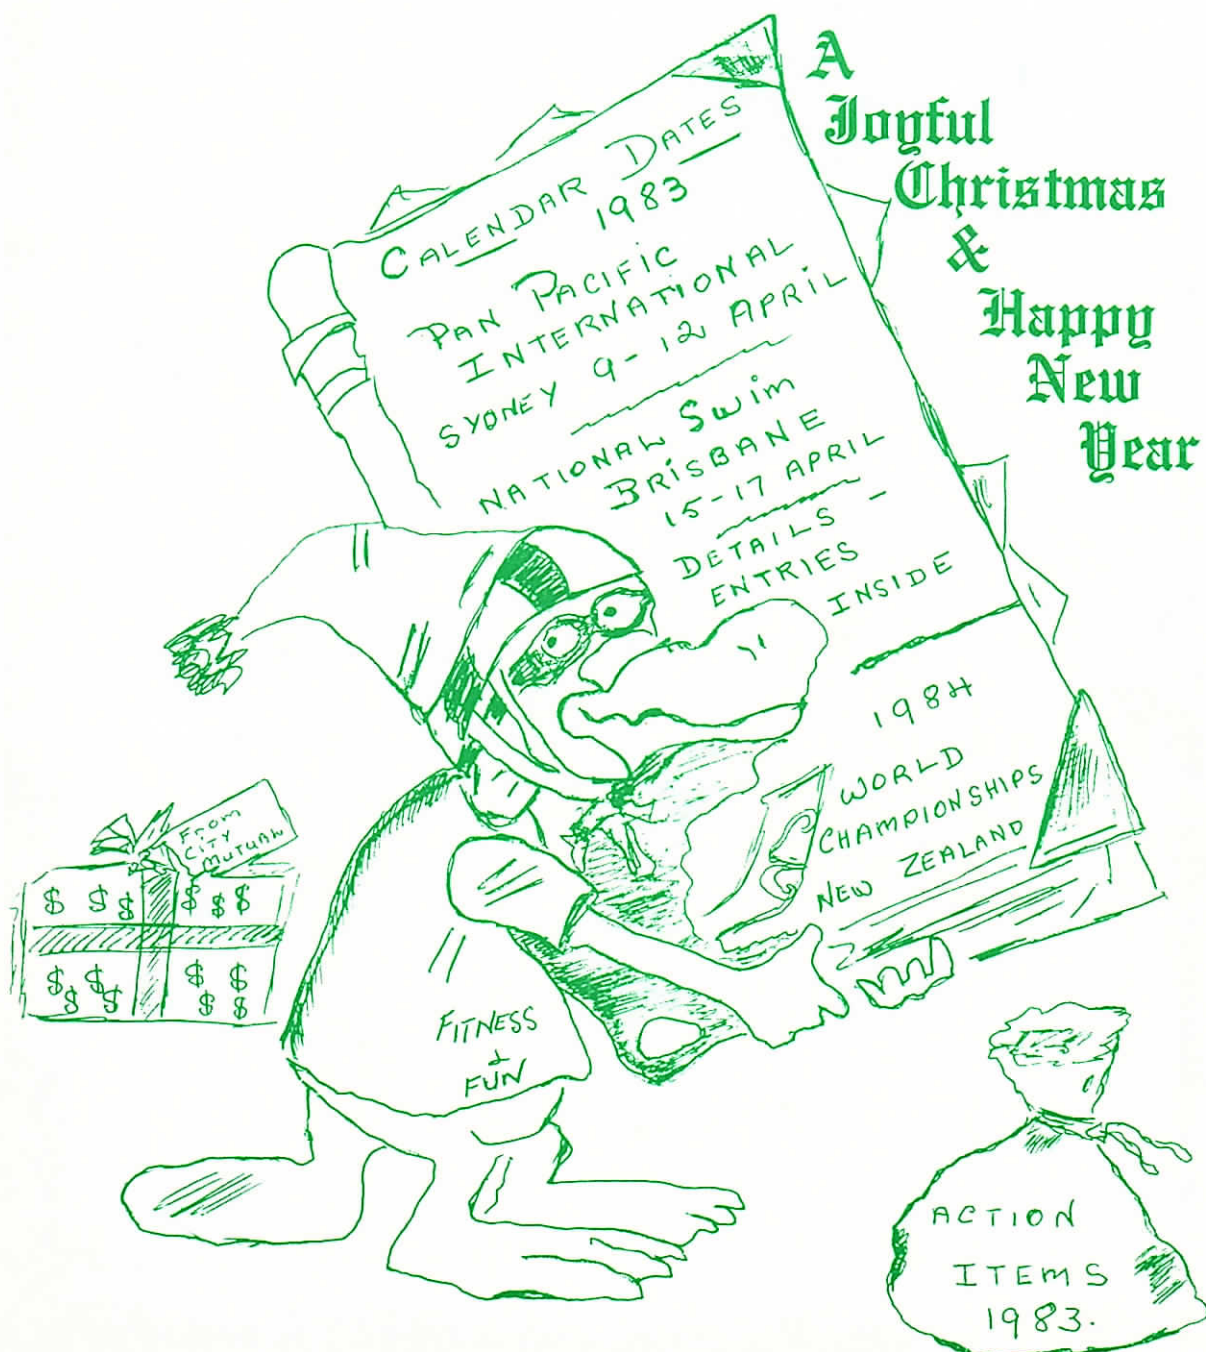 A
Joyful
Christmas
&
Happy
New
Year
CALENDAR DATES
1983
PAN PACIFIC
INTERNATIONAL
SYDNEY 9-12 APRIL
NATIONAL Swim
BRISBANE
15-17 APRIL
DETAILS -
ENTRIES
INSIDE
1984
WORLD
CHAMPIONSHIPS
NEW ZEALAND
From
CITY
MUTUAL
$ $ $ $ $ $
$ $ $ $ $ $
$ $ $
FITNESS
&
FUN
ACTION
ITEMS
1983.